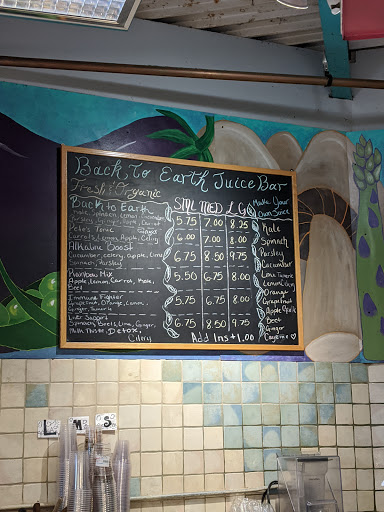 Back To Earth Juice Bar
Back To Earth Juice Bar
Fresh & Organic
SML MED LG
Make Your
Own Juice
Back to Earth
Kale, Spinach, Lemon, Cucumber,
Parsley, Ginger, Apple, Carrot
5.75 7.00 8.25
Pete's Tonic Ginger
Carrots, Lemon, Apple, Celery
6.00 7.00 8.00
Alkaline Boost
Cucumber, celery, apple, Lime
Spinach, Parsley
6.75 8.50 9.75
Rainbow Mix
Apple, Lemon, Carrot, Kale,
Beet
5.50 6.75 8.00
Immune Fighter
Grapefruit, Orange, Lemon,
Ginger, Tumeric
5.75 6.75 8.00
Liver Support
Spinach, Beets, Lime, Ginger,
Milk Thistle, Detox,
Celery
6.75 8.50 9.75
Add Ins +1.00
Kale
Spinach
Parsley
Cucumber
Lime
Lemon
Orange
Grapefruit
Apple
Beet
Ginger
Cayenne
L M S